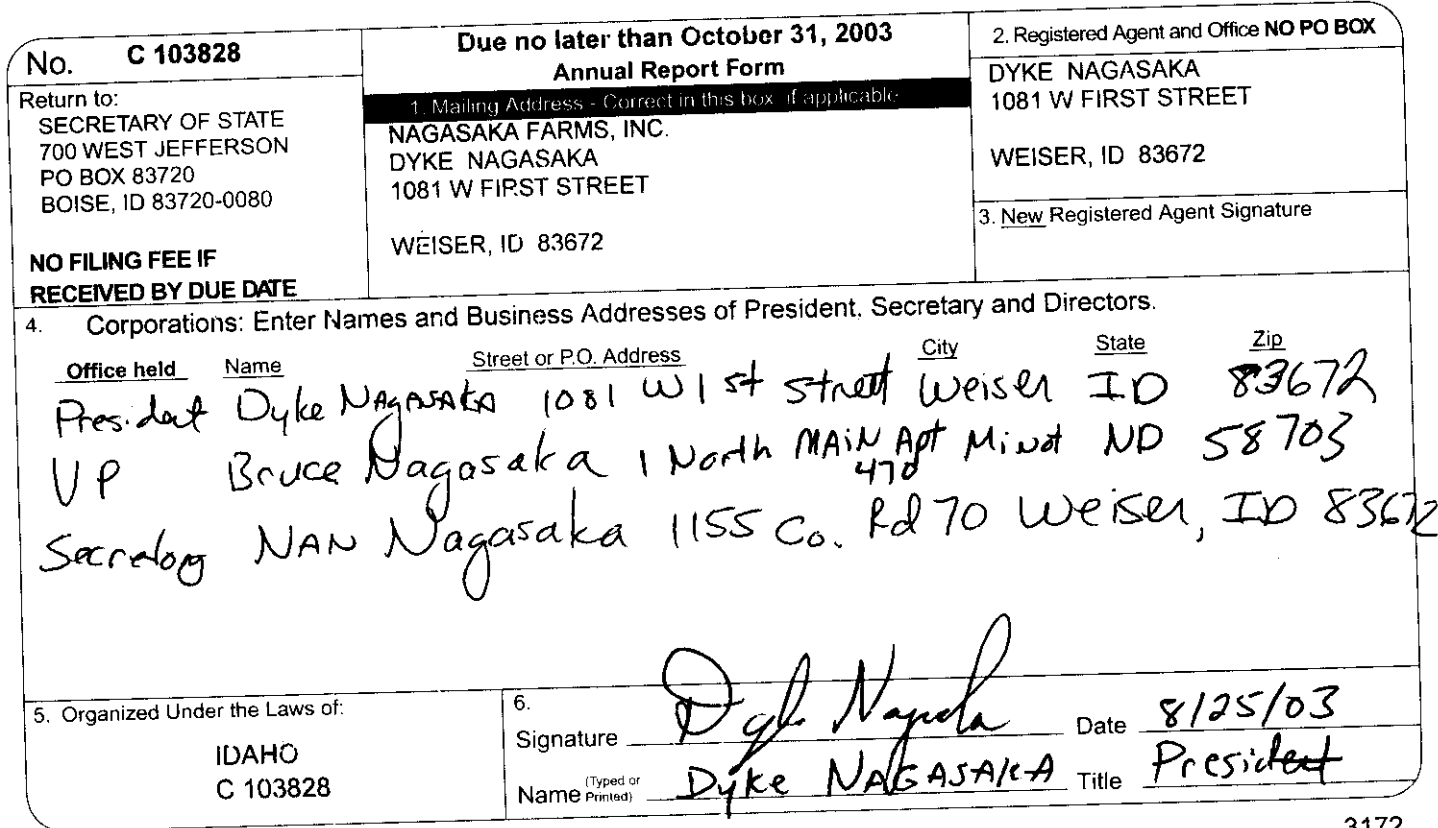 No. C 103828
Return to:
SECRETARY OF STATE
700 WEST JEFFERSON
PO BOX 83720
BOISE, ID 83720-0080
NO FILING FEE IF
RECEIVED BY DUE DATE
Due no later than October 31, 2003
Annual Report Form
1. Mailing Address - Correct in this box if applicable
NAGASAKA FARMS, INC.
DYKE NAGASAKA
1081 W FIRST STREET
WEISER, ID 83672
2. Registered Agent and Office NO PO BOX
DYKE NAGASAKA
1081 W FIRST STREET
WEISER, ID 83672
3. New Registered Agent Signature
4. Corporations: Enter Names and Business Addresses of President, Secretary and Directors.
Office held Name Street or P.O. Address City State Zip
President Dyke Nagasaka 1081 W 1st street Weiser ID 83672
VP Bruce Nagasaka 1 North MAiN Apt Minot ND 58703
470
Secretary NAN Nagasaka 1155 Co. Rd 70 Weiser, ID 83672
5. Organized Under the Laws of:
IDAHO
C 103828
6.
Signature Dyke Nagasaka Date 8/25/03
Name (Typed or Printed) Dyke NAGASAKA Title President
3172